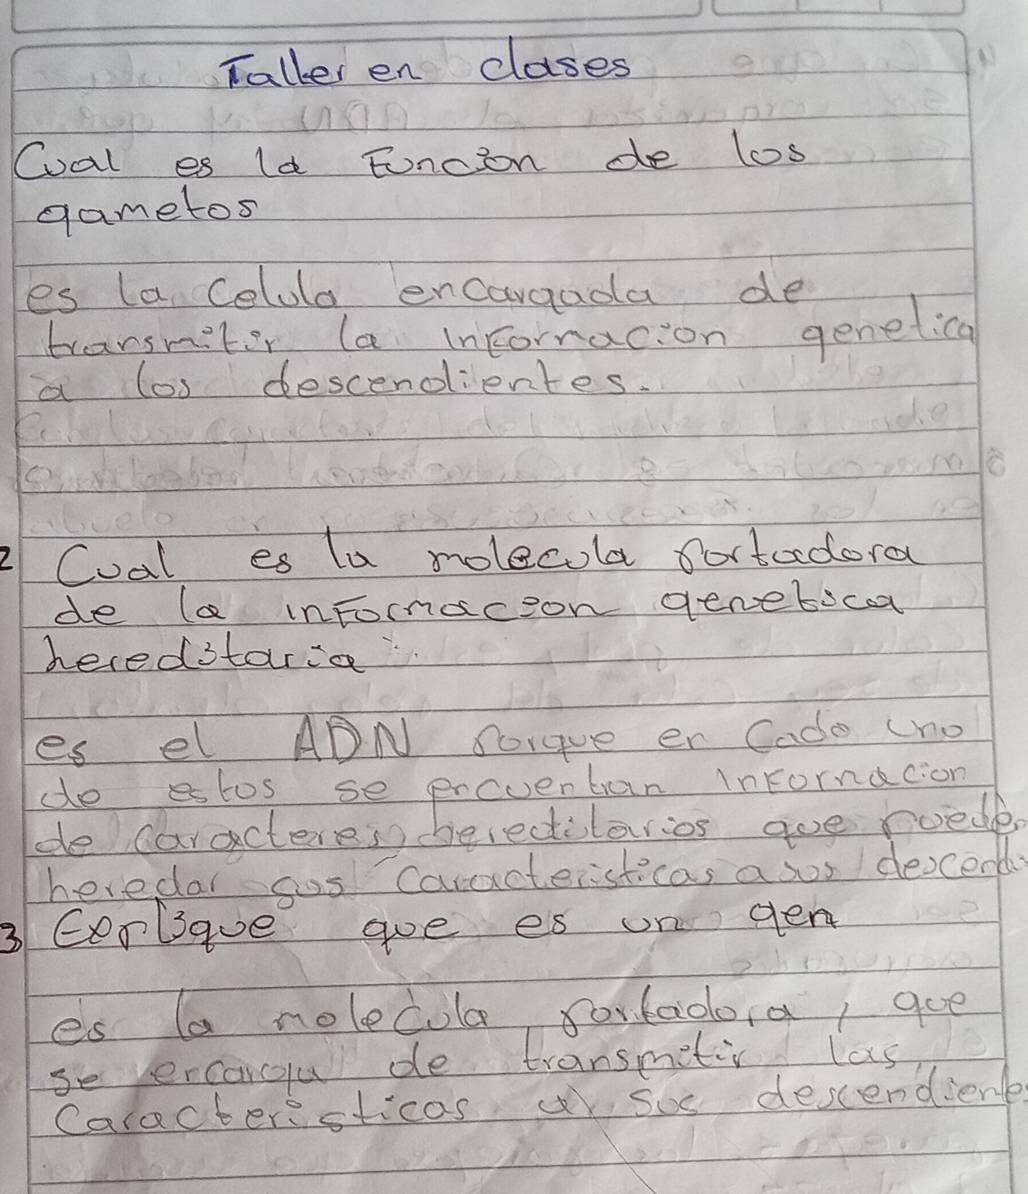 Taller en clases
Cual es la Funcion de los
gametos
es la celula encargada de
transmitir la informacion genetica
a los descendientes.
2 Cual es la molecula portadora
de la informacion genetica
hereditaria
es el ADN porque en Cada uno
de estos se encuentran informacion
de caracteres hereditarios que pueden
heredar sus caracteristicas a sus descendi
3 Explique que es un gen
es la molecula portadora, que
se encarga de transmitir las
Caracteristicas a sus descendientes